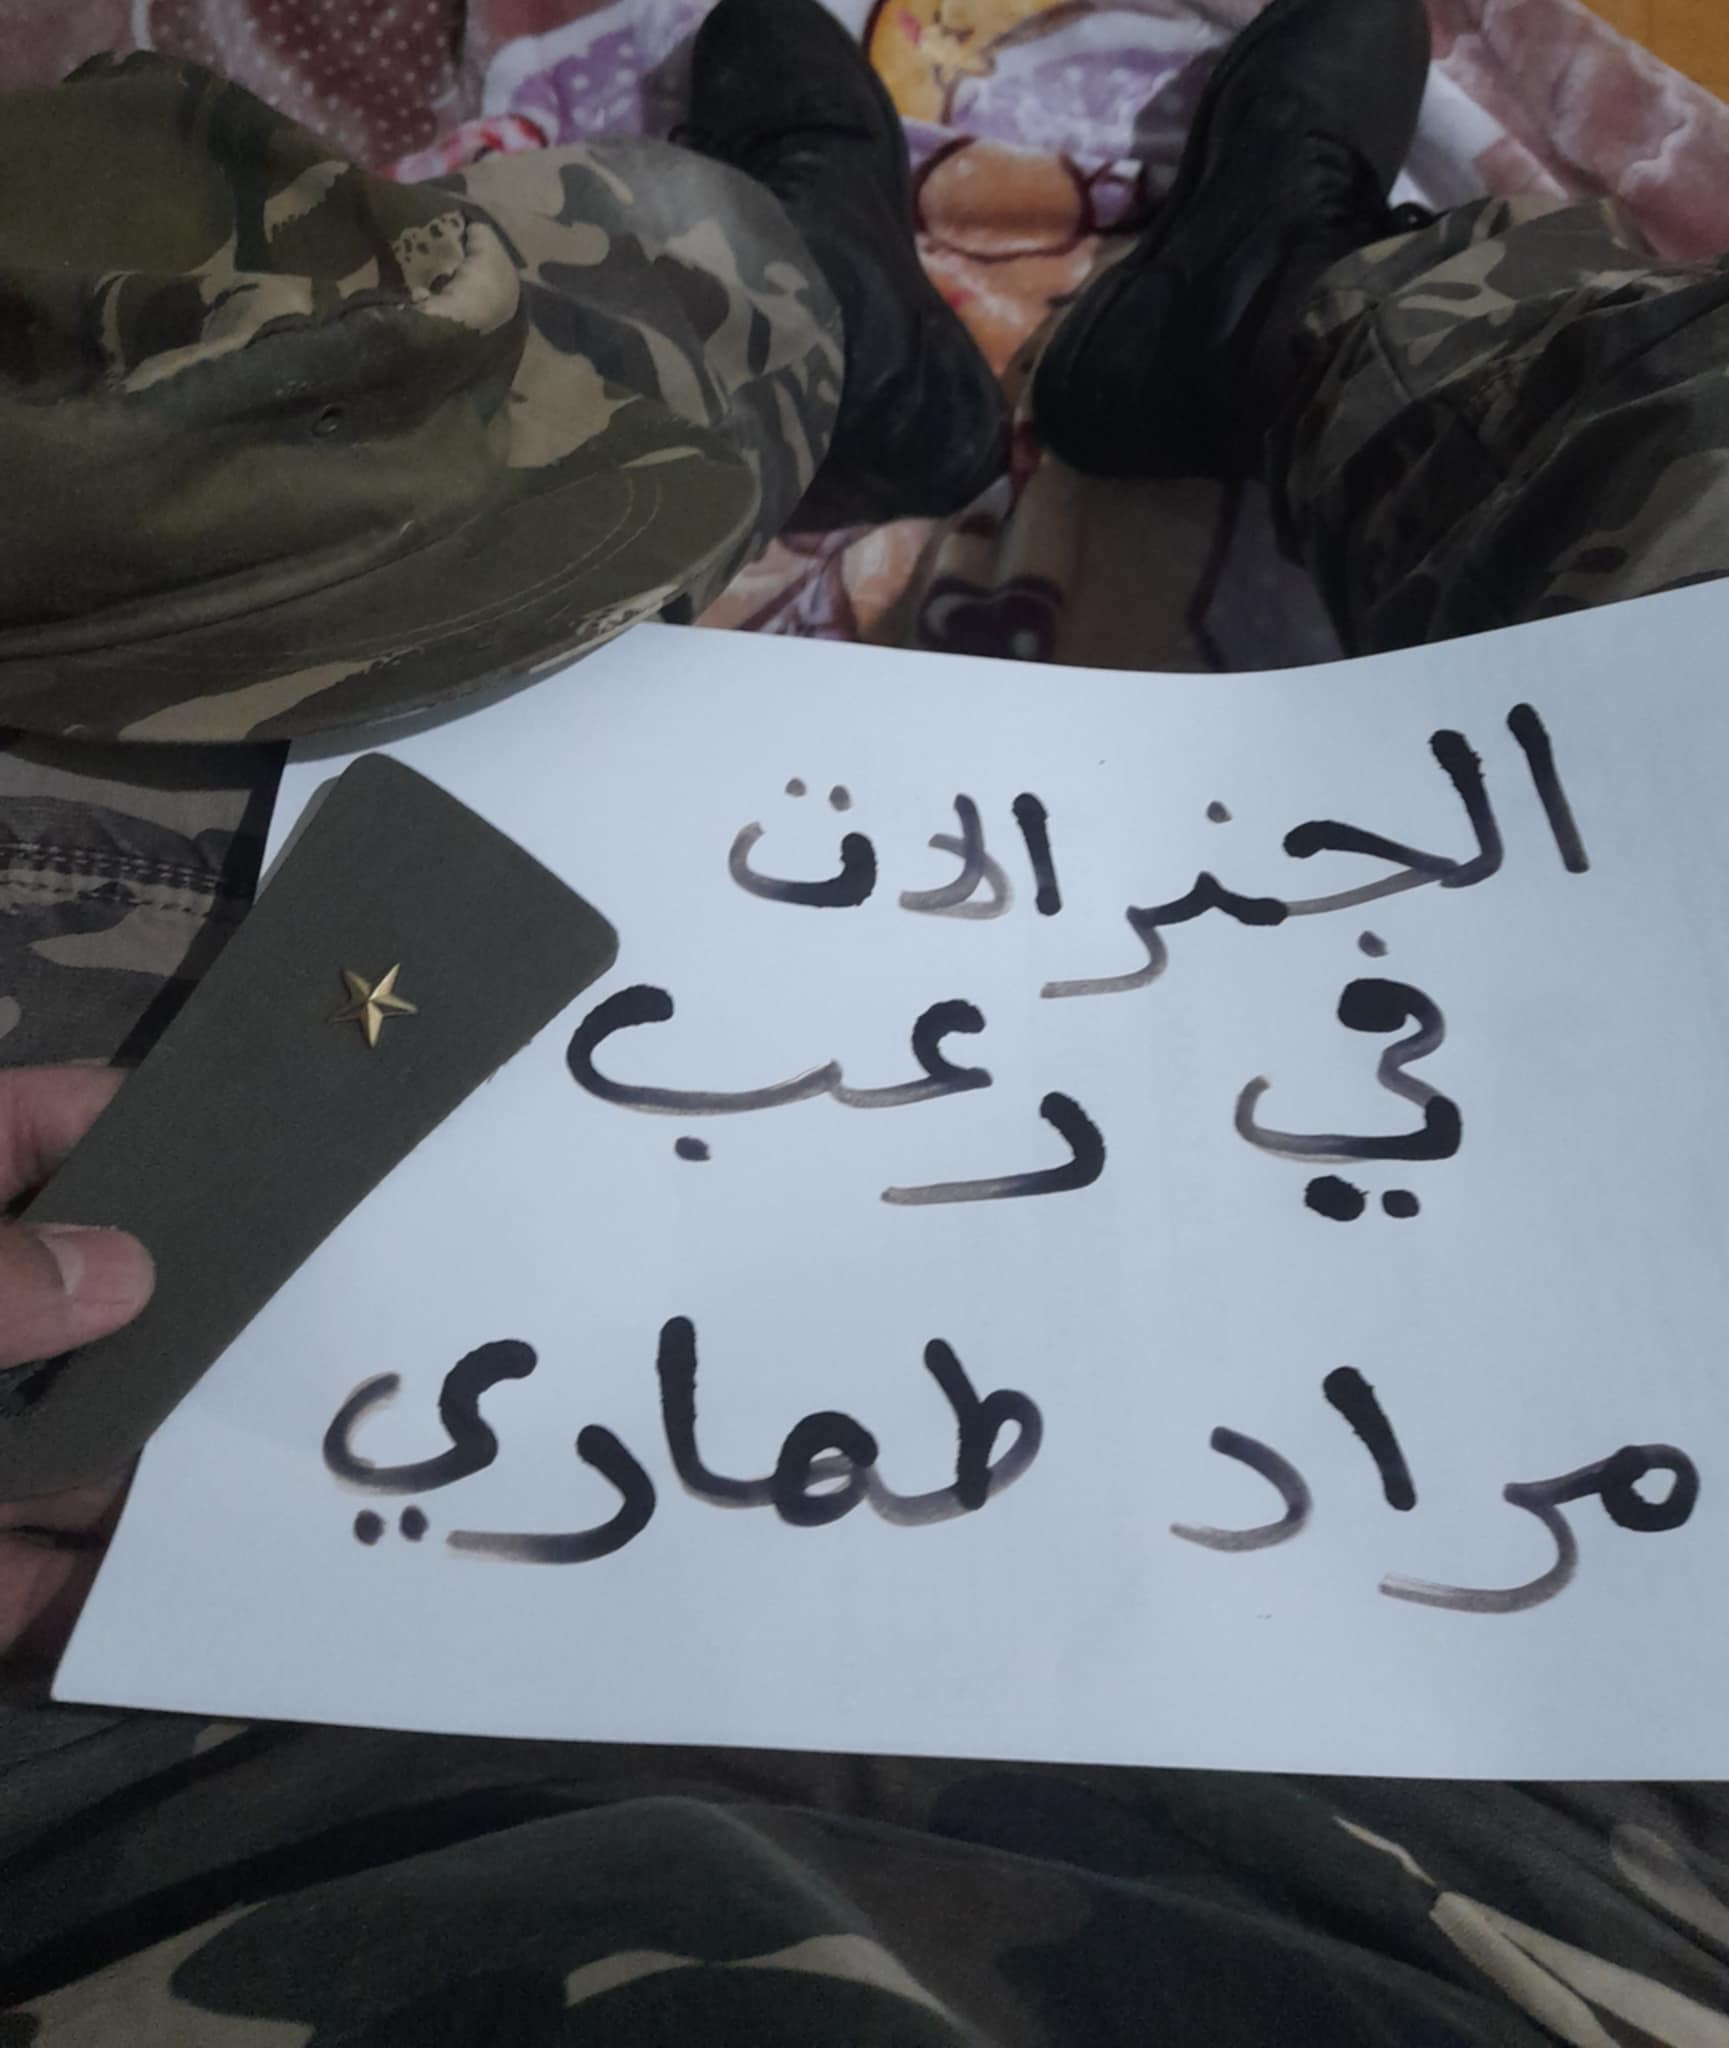 الجنرالات
في رعب
مراد طماري